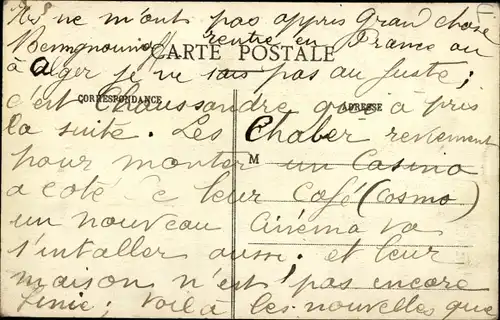 ils ne m'ont pas appris Grand chose
rentre en France ou
CARTE POSTALE
à alger je ne sais pas au juste;
c'est Chaussandre qui à pris
CORRESPONDANCE
ADRESSE
la suite. Les Chaber reviennent
M
pour monter un Casino
a coté de leur Café (Cosmo)
un nouveau Cinéma va
s'intaller aussi. et leur
maison n'est pas encore
finie; Voilà les nouvelles que